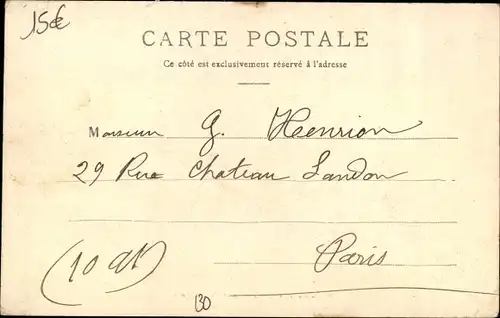 15€
CARTE POSTALE
Ce côté est exclusivement réservé à l'adresse
Monsieur G. Henrion
29 Rue Chateau Landon
Paris
(10 art)
130